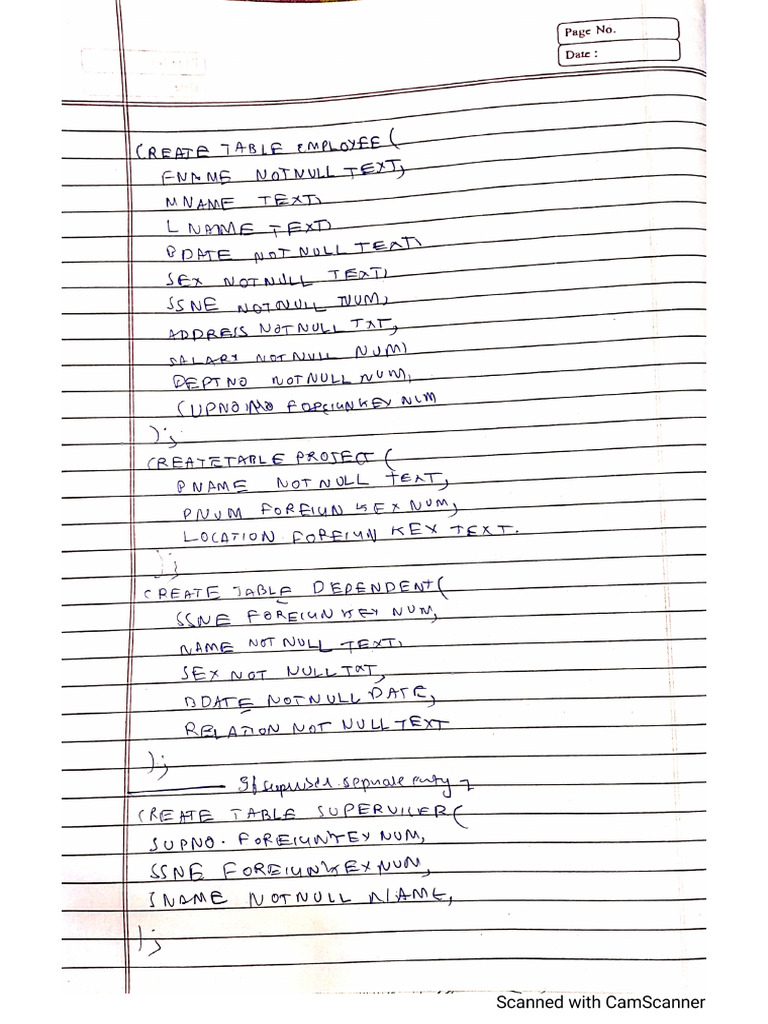 Page No.
Date :
CREATE TABLE EMPLOYEE (
FNAME NOTNULL TEXT,
MNAME TEXT,
LNAME TEXT,
BDATE NOTNULL TEXT,
SEX NOTNULL TEXT,
SSNE NOTNULL NUM,
ADDRESS NOTNULL TXT,
SALARY NOTNULL NUM,
DEPTNO NOTNULL NUM,
SUPNO FOREIUNKEY NUM
);
CREATETABLE PROJECT (
PNAME NOTNULL TEXT,
PNUM FOREIUN KEY NUM,
LOCATION FOREIUN KEY TEXT.
);
CREATE TABLE DEPENDENT(
SSNE FOREIUNKEY NUM,
NAME NOTNULL TEXT,
SEX NOT NULL TXT,
BDATE NOTNULL DATE,
RELATION NOT NULL TEXT
);
If seperate
CREATE TABLE SUPERVICER(
SUPNO. FOREIUNKEY NUM,
SSNE FOREIUNKEY NUM,
SNAME NOTNULL NAME,
);
Scanned with CamScanner